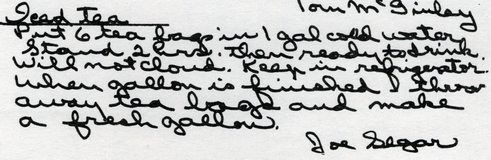 Iced Tea
Tom McGinley
Put 6 tea bags in 1 gal cold water
Stand 2 hrs. then ready to drink.
Will not cloud. Keep in refrigerator.
When gallon is finished I throw
away tea bags and make
a fresh gallon.
Joe Segar